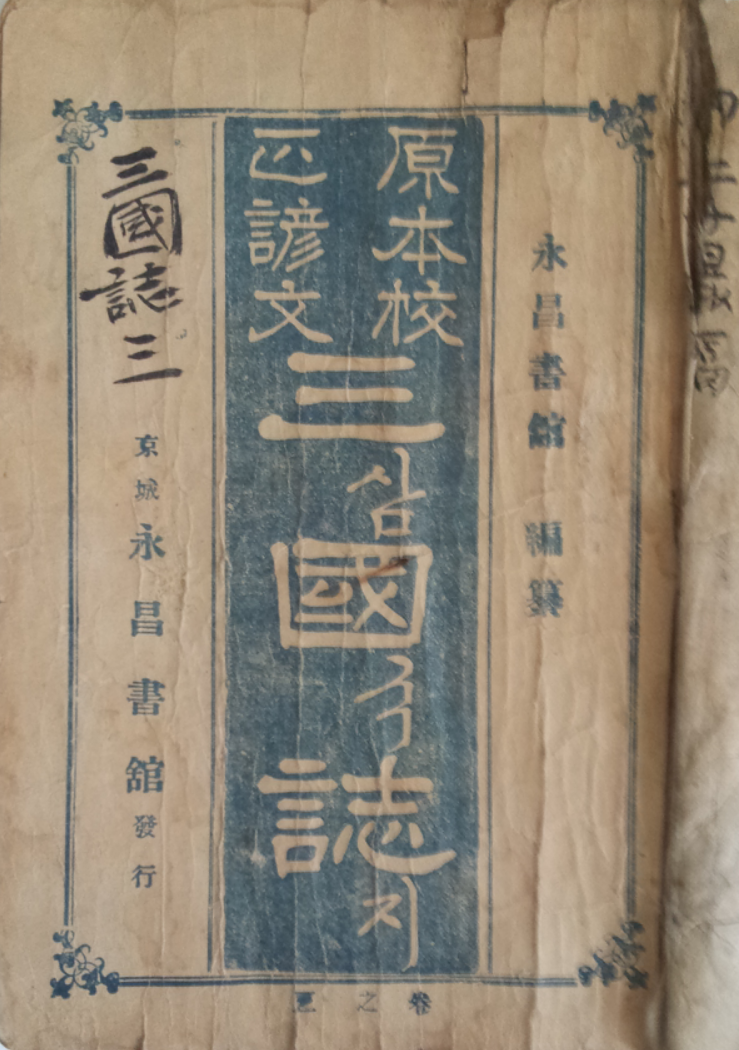 永昌書館 編纂
原本校
正諺文
三國誌
삼국지
三國誌 三
京城 永昌書館 發行
卷之三